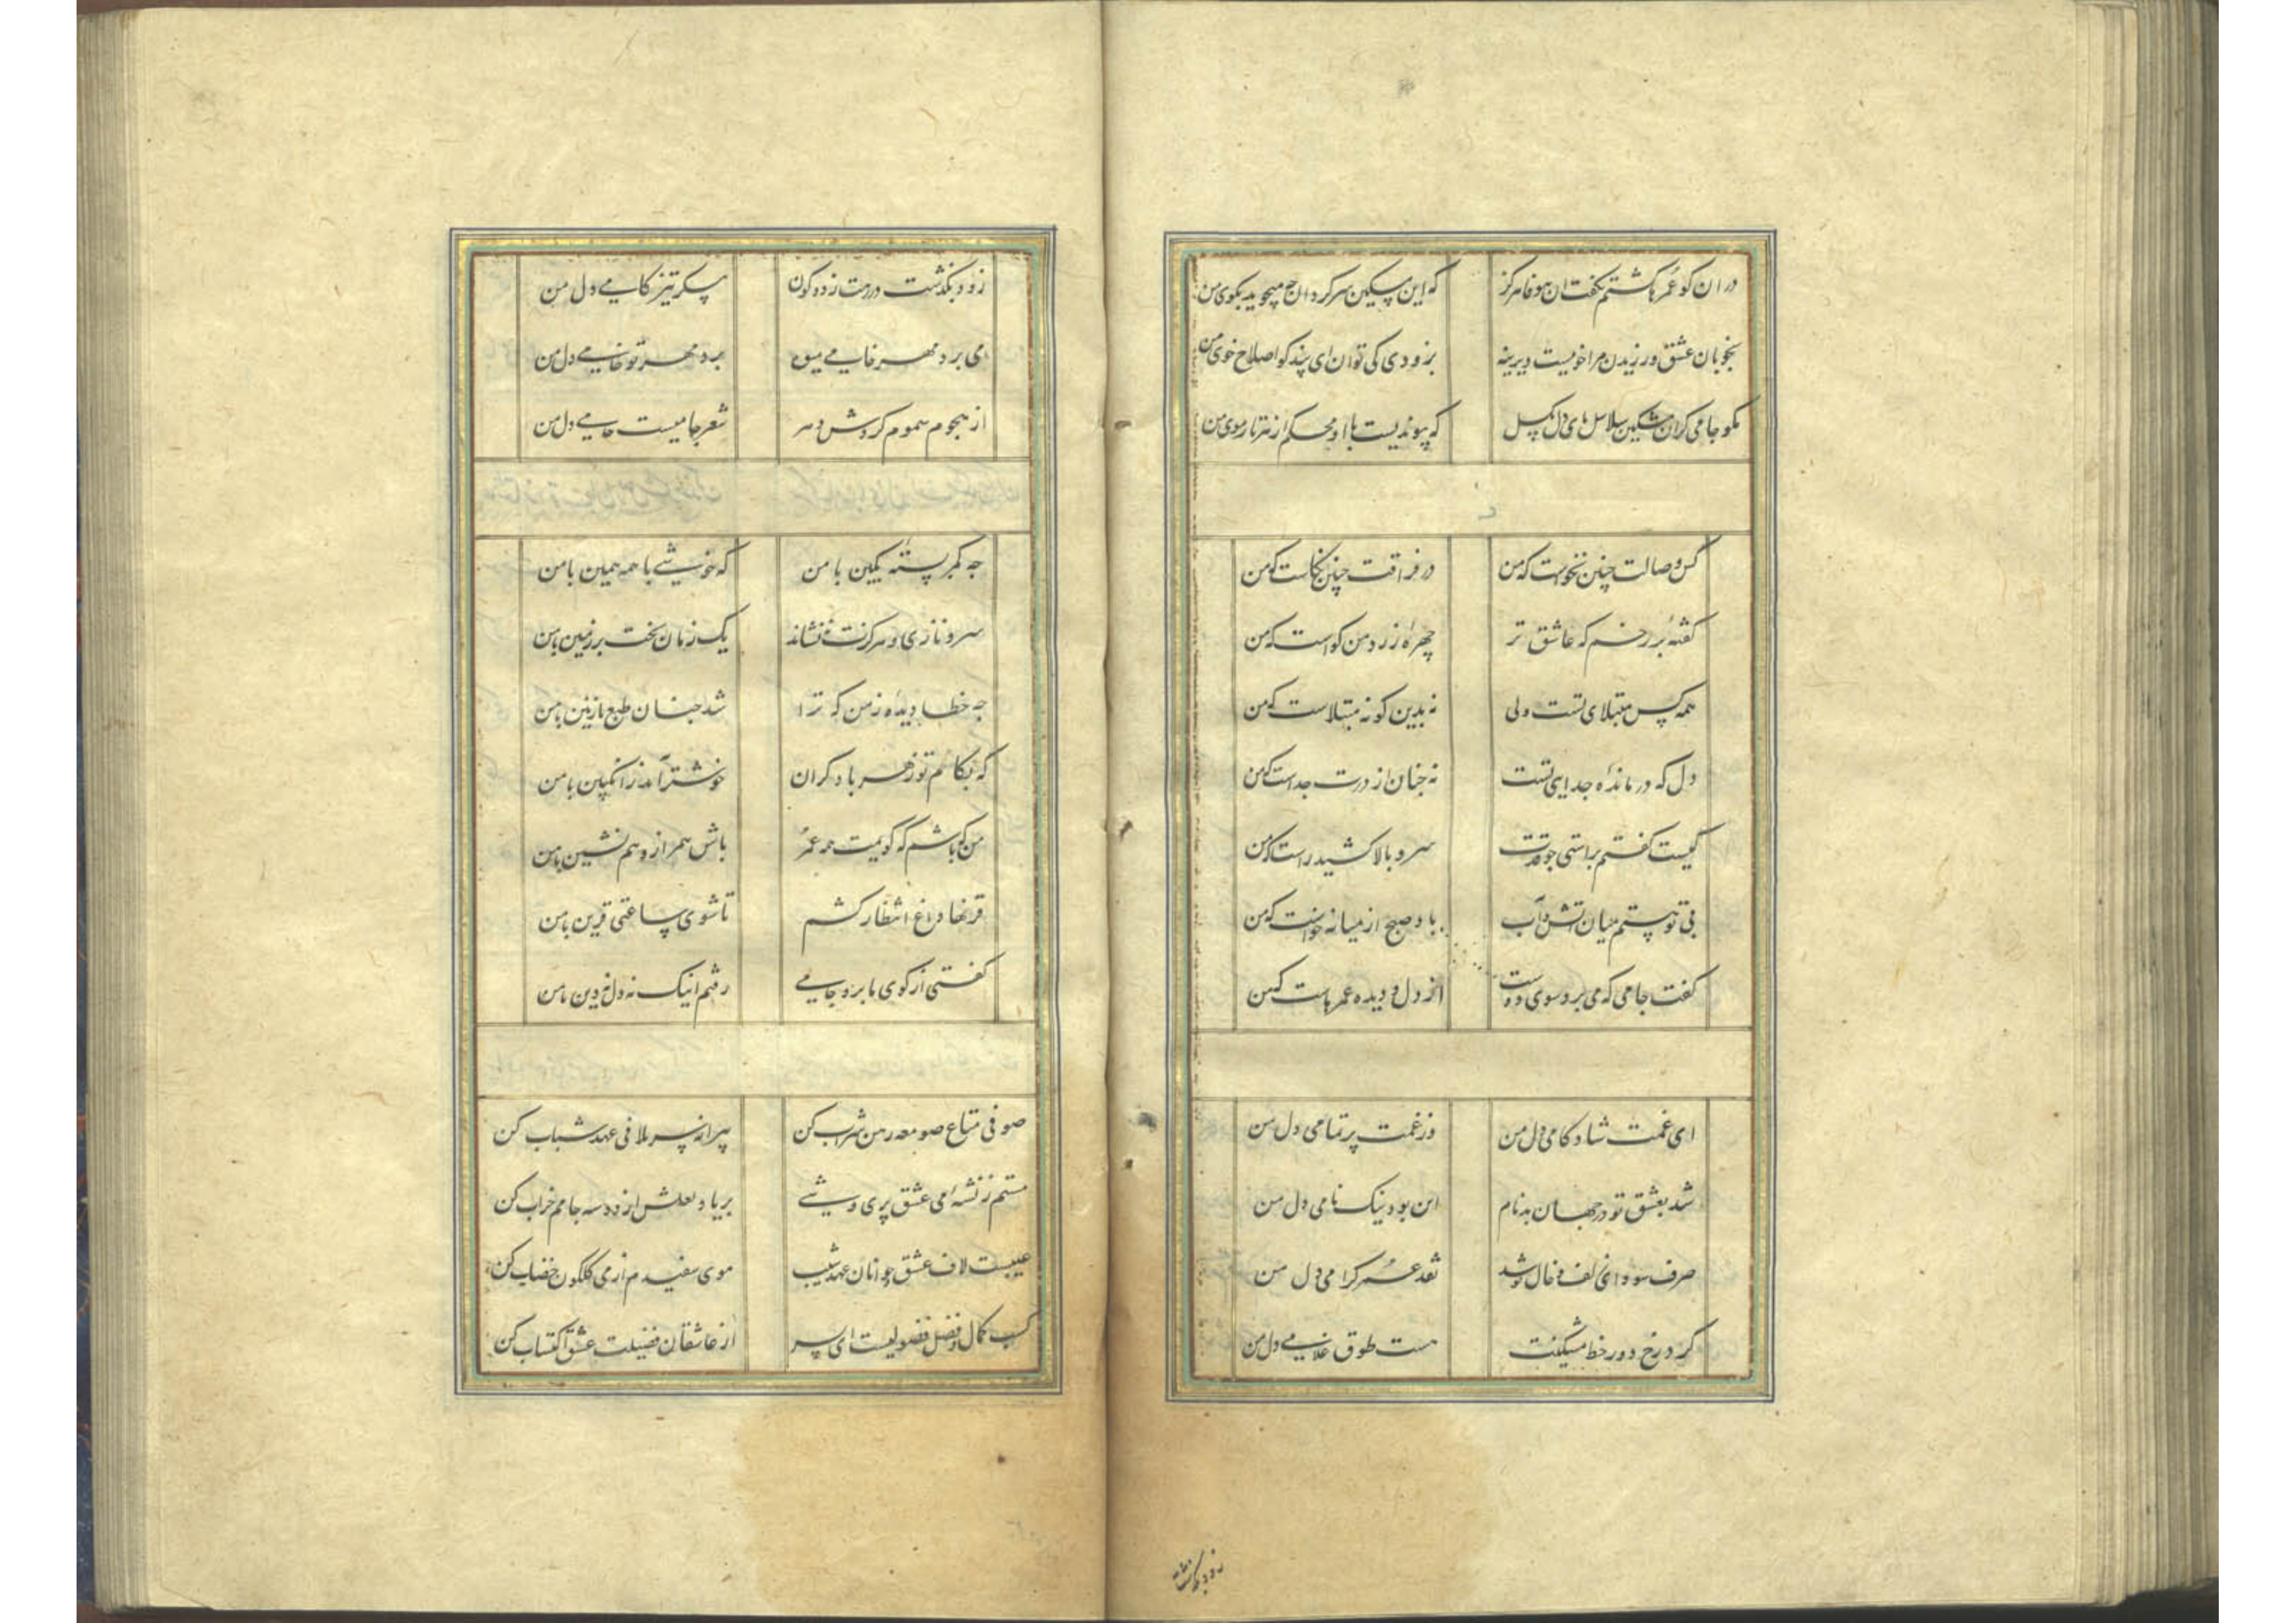 در ان کو عمرها کشتم نکفت ان بیوفا هرکز که این مسکین سرکردان چه میجوید بکوی من
بخوبان عشق ورزیدن مرا خوییست دیرینه بزودی کی توان ای پندکو اصلاح خوی من
مکو جامی کزان مشکین سلاسل پای دل بکسل که پیوندیست با او محکم از هر تار موی من
کس وصالت چنین نخواست که من در فراقت چنین نکاست که من
کفتهٔ بر رخم که عاشق تر چهرهٔ زرد من کواست که من
همه کس مبتلای تست ولی نه بدین کونه مبتلاست که من
دل که درماندهٔ جدایی تست نه چنان از درت جداست که من
کیست کفتم براستی چو قدت سرو بالا کشید راست که من
بی تو هستم میان اتش و آب باد صبح از میانه خواست که من
کفت جامی که می برد سوی دوست از دل و دیده عمرهاست که من
ای غمت شادکامی دل من وز غمت پر تمامی دل من
شد بعشق تو در جهان بدنام این بود نیک نامی دل من
صرف سودای زلف و خال تو شد نقد عمر کرامی دل من
کرد رخ دور خط مشکینت هست طوق غلامی دل من
زود بکذشت
زود بکذشت درمت زده کون سکر تیز کامی دل من
می برد مهر خامی میوه برد مهر تو خامی دل من
از هجوم هموم کردش دهر شعر جامیست حامی دل من
چه کمر بستهٔ بکین با من که خوشی با همه همین با من
سرو نازی و هرکزت ننشاند یک زمان بخت بر زمین با من
چه خطا دیدهٔ ز من که ترا شد چنان طبع نازنین با من
که بکام تو زهر با دکران خوشتر آمد ز انکبین با من
من که باشم که کویمت همه عمر باش همراز و هم نشین با من
قرنها داغ انتظار کشم تا شوی ساعتی قرین با من
کفتی از کوی ما برو جامی رفتم اینک نه دل نه دین با من
صوفی متاع صومعه رهن شراب کن پیرانه سر تلافی عهد شباب کن
مستم ز نشهٔ می عشق پری وشی بر یاد لعلش از دو سه جامم خراب کن
عیبست لاف عشق جوانان بعهد شیب موی سفیدم از می کلکون خضاب کن
کسب کمال و فضل فضولیست ای پسر از عاشقان فضیلت عشق اکتساب کن